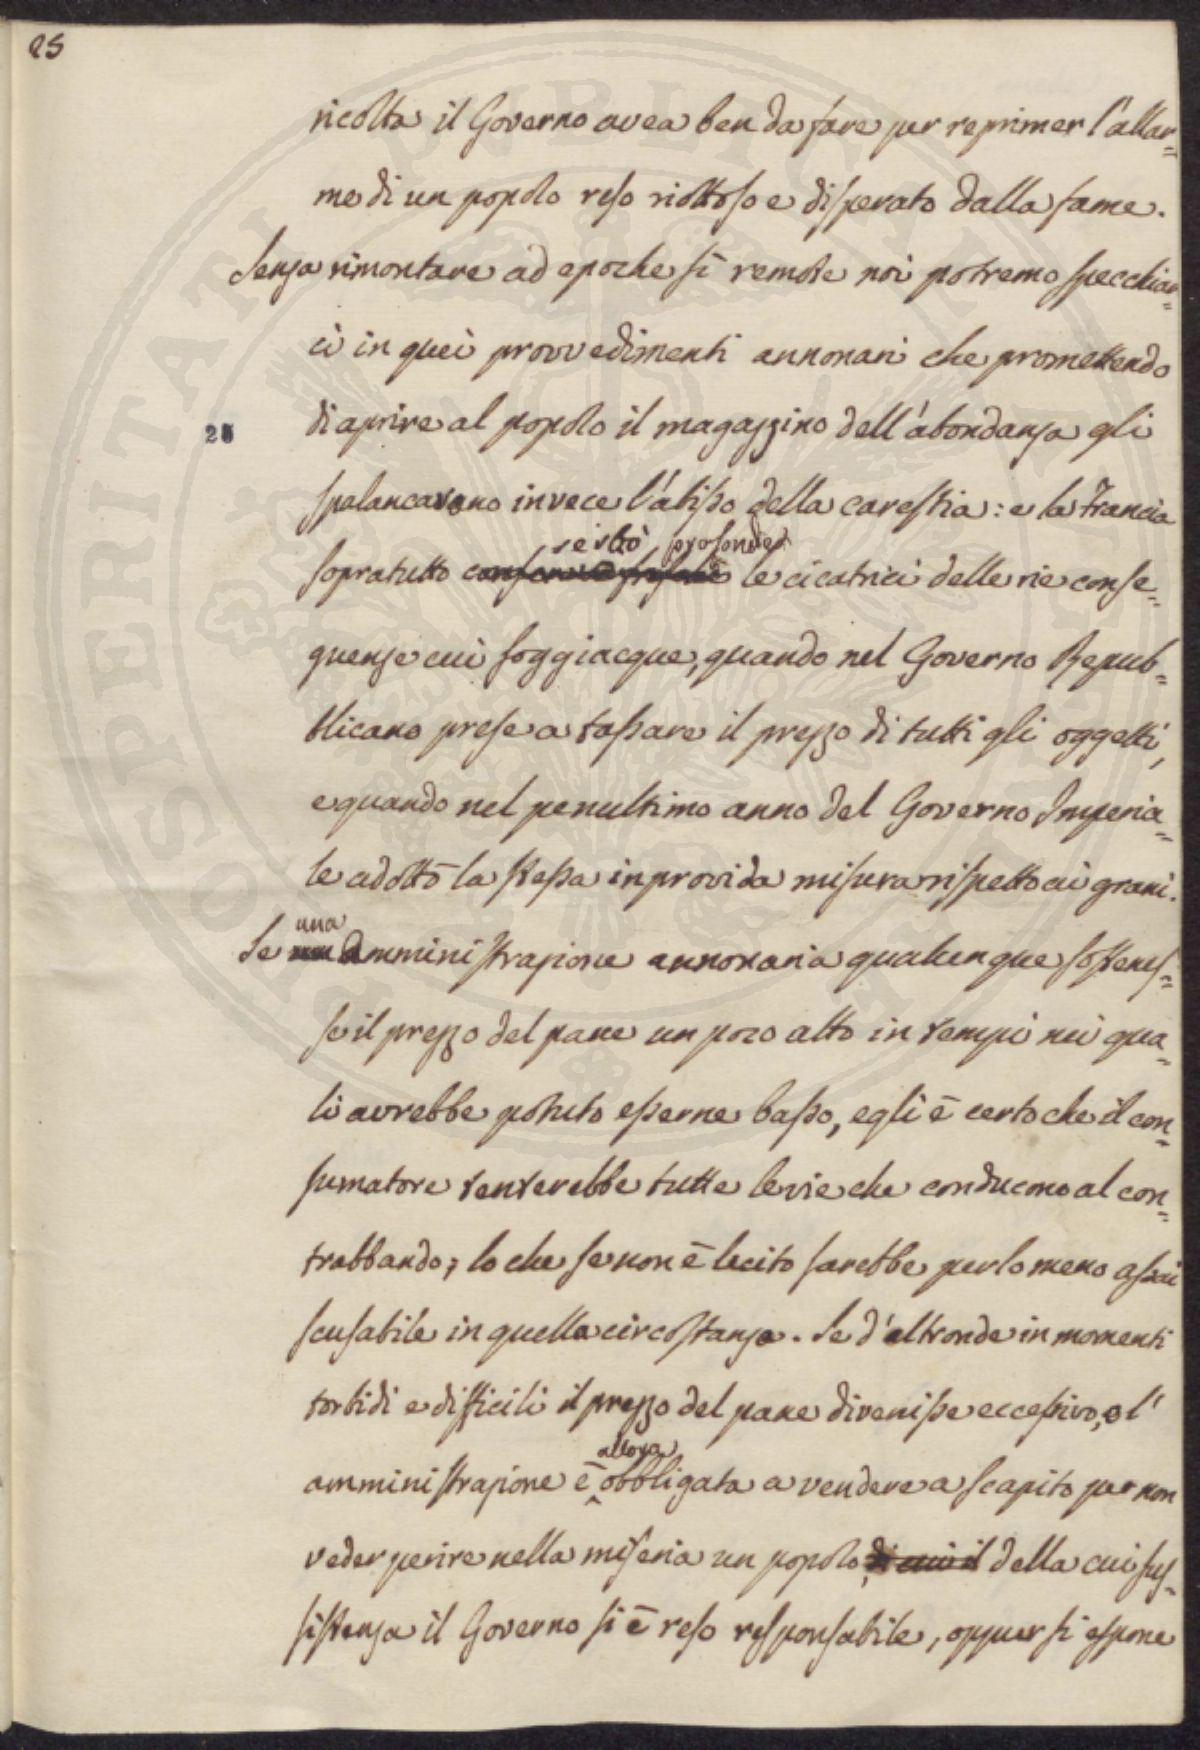 25
ricolta il Governo avea ben da fare per reprimer l'allar=
me di un popolo reso riottoso e disperato dalla fame.
Senza rimontare ad epoche sì remote noi potremo specchiar=
ci in quei provvedimenti annonari che promettendo
di aprire al popolo il magazzino dell'abondanza gli
25
spalancavano invece l'abisso della carestia: e la Francia
serbò profonde
sopratutto le cicatrici delle rie conse=
quenze cui soggiacque, quando nel Governo Repub=
blicano prese a tassare il prezzo di tutti gli oggetti,
e quando nel penultimo anno del Governo Imperia=
le adottò la stessa improvida misura rispetto ai grani.
una
Se amministrazione annonaria qualunque sostenes=
se il prezzo del pane un poco alto in tempi nei qua=
li avrebbe potuto esserne basso, egli è certo che il con=
sumatore tenterebbe tutte le vie che conducono al con=
trabbando; lo che se non è lecito sarebbe per lo meno assai
scusabile in quella circostanza. Se d'altronde in momenti
torbidi e difficili il prezzo del pane divenisse eccessivo, o l'
allora
amministrazione è obbligata a vendere a scapito per non
veder perire nella miseria un popolo, di cui il della cui sus=
sistenza il Governo si è reso responsabile, oppur si espone